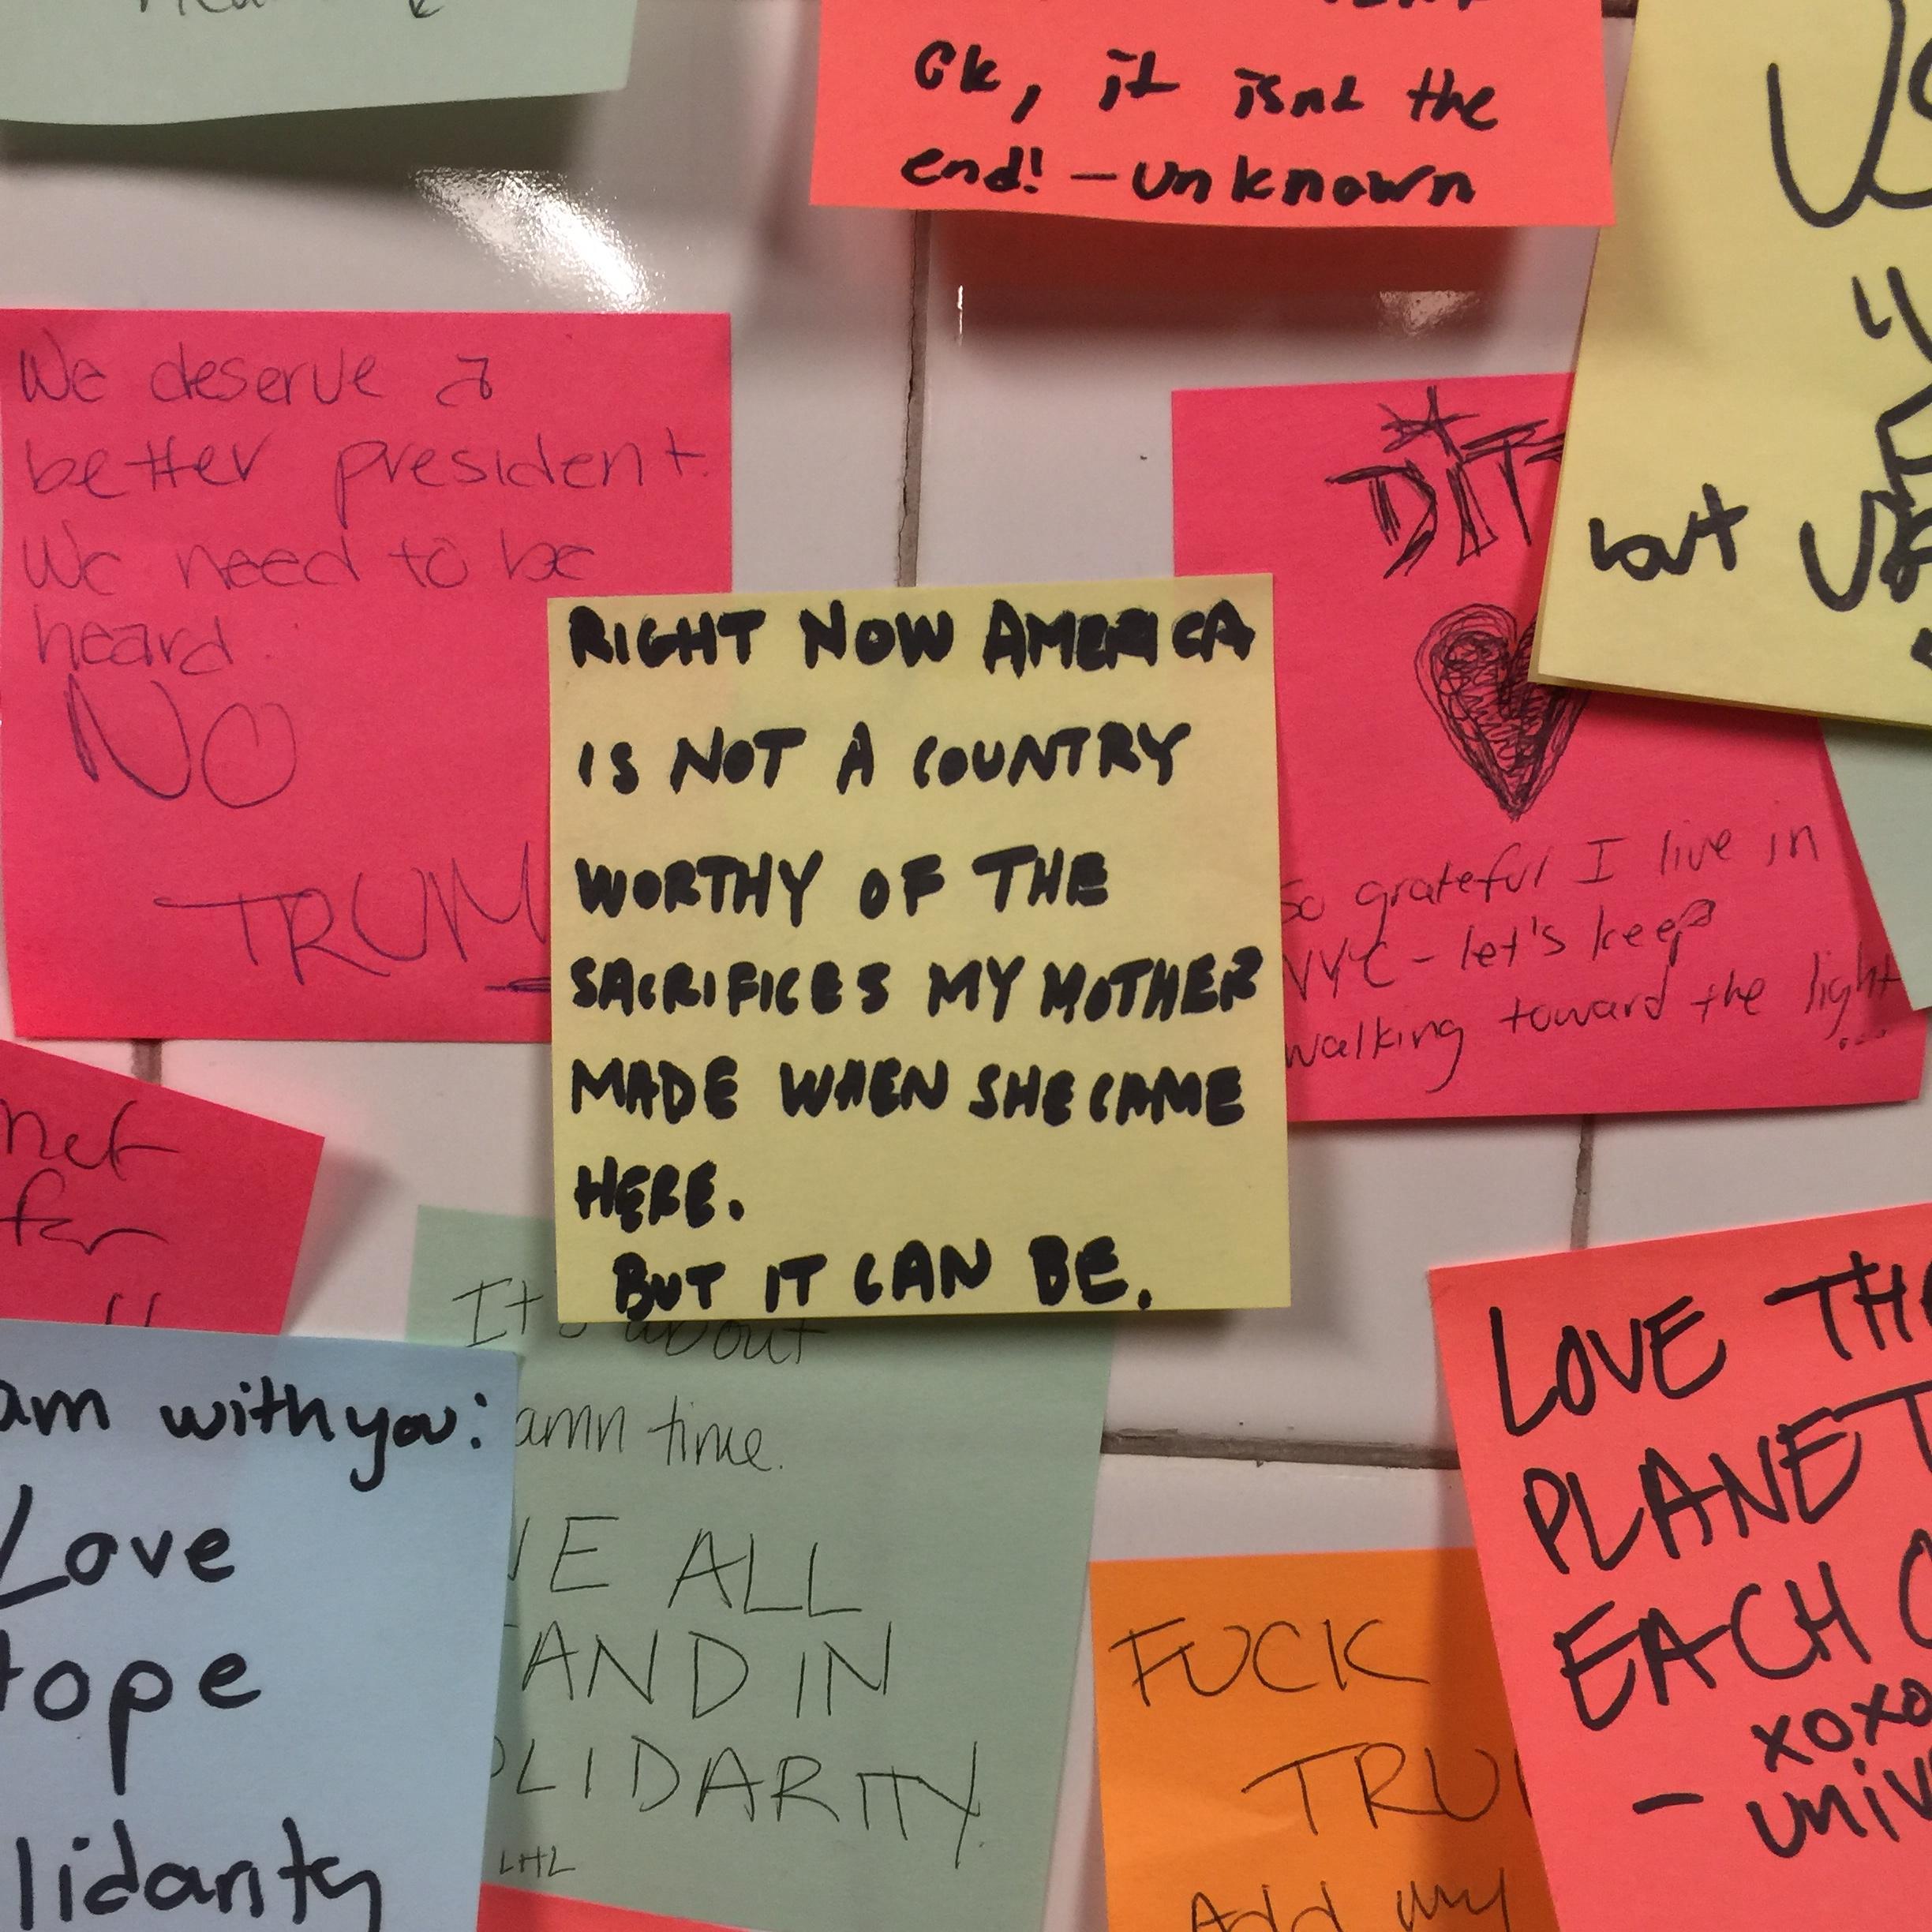 Ok, it isnt the
end! - unknown
We deserve a
better president.
We need to be
heard.
NO
TRUM
DIT
but
RIGHT NOW AMERICA
IS NOT A COUNTRY
WORTHY OF THE
SACRIFICES MY MOTHER
MADE WHEN SHE CAME
HERE.
BUT IT CAN BE.
So grateful I live in
NYC - let's keep
walking toward the light
...
for
am with you:
Love
Hope
lidarity
It's about
amn time.
WE ALL
TAND IN
OLIDARITY.
LHL
FUCK
TRU
Add my
LOVE TH
PLANET
EACH O
xoxo
- univ